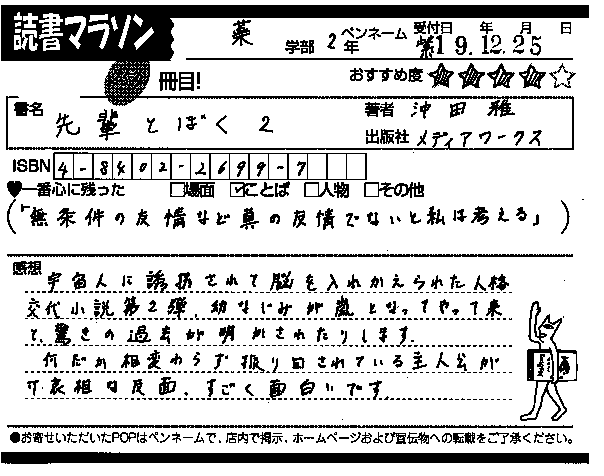 読書マラソン
冊目!
薬 学部 2年 ペンネーム 紫 受付日 19年12月25日
おすすめ度 ★★★★☆
書名 先輩とぼく 2
著者 沖田 雅
出版社 メディアワークス
ISBN 4-8402-2699-7
♥一番心に残った □場面 ☑ことば □人物 □その他
(「無条件の友情など真の友情でないと私は考える」)
感想
宇宙人に誘拐されて脳を入れかえられた人格
交代小説第2弾、幼なじみが嵐となってやって来
て、驚きの過去が明かされたりします。
何だか相変わらず振り回されている主人公が
可哀相な反面、すごく面白いです。
●お寄せいただいたPOPはペンネームで、店内で掲示、ホームページおよび宣伝物への転載をご了承ください。